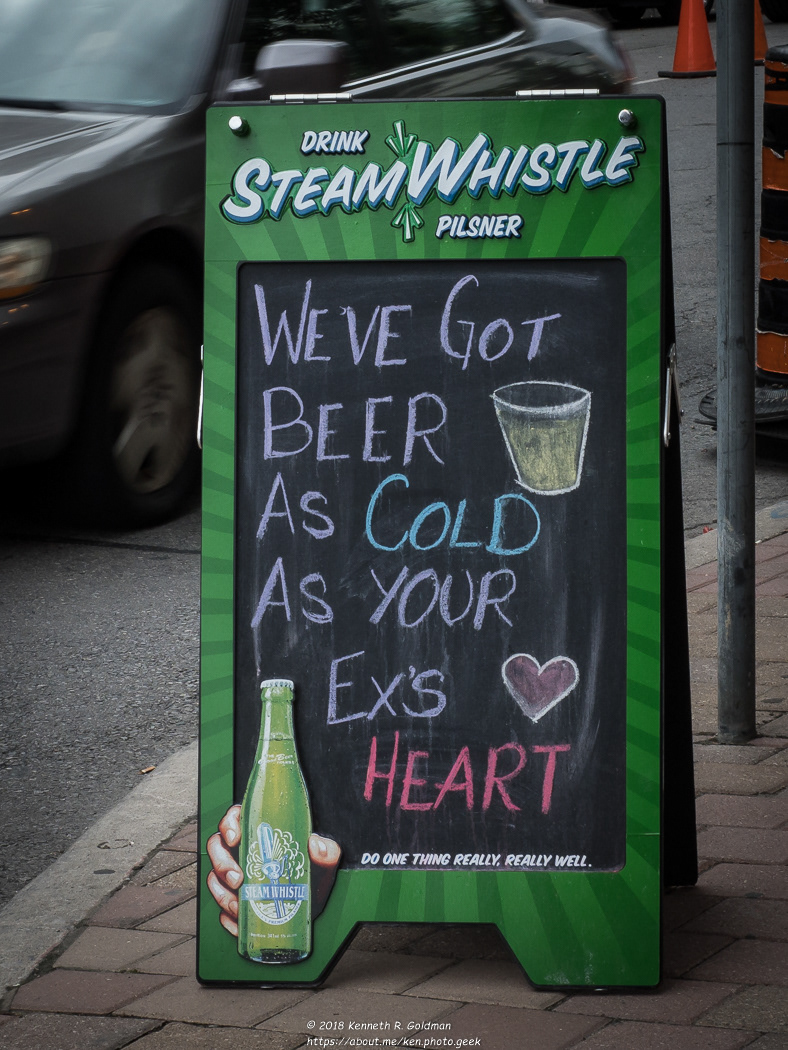 DRINK
STEAMWHISTLE
PILSNER
WE'VE GOT
BEER
AS COLD
AS YOUR
EX'S
HEART
STEAM WHISTLE
DO ONE THING REALLY, REALLY WELL.
© 2018 Kenneth R. Goldman
https://about.me/ken.photo.geek